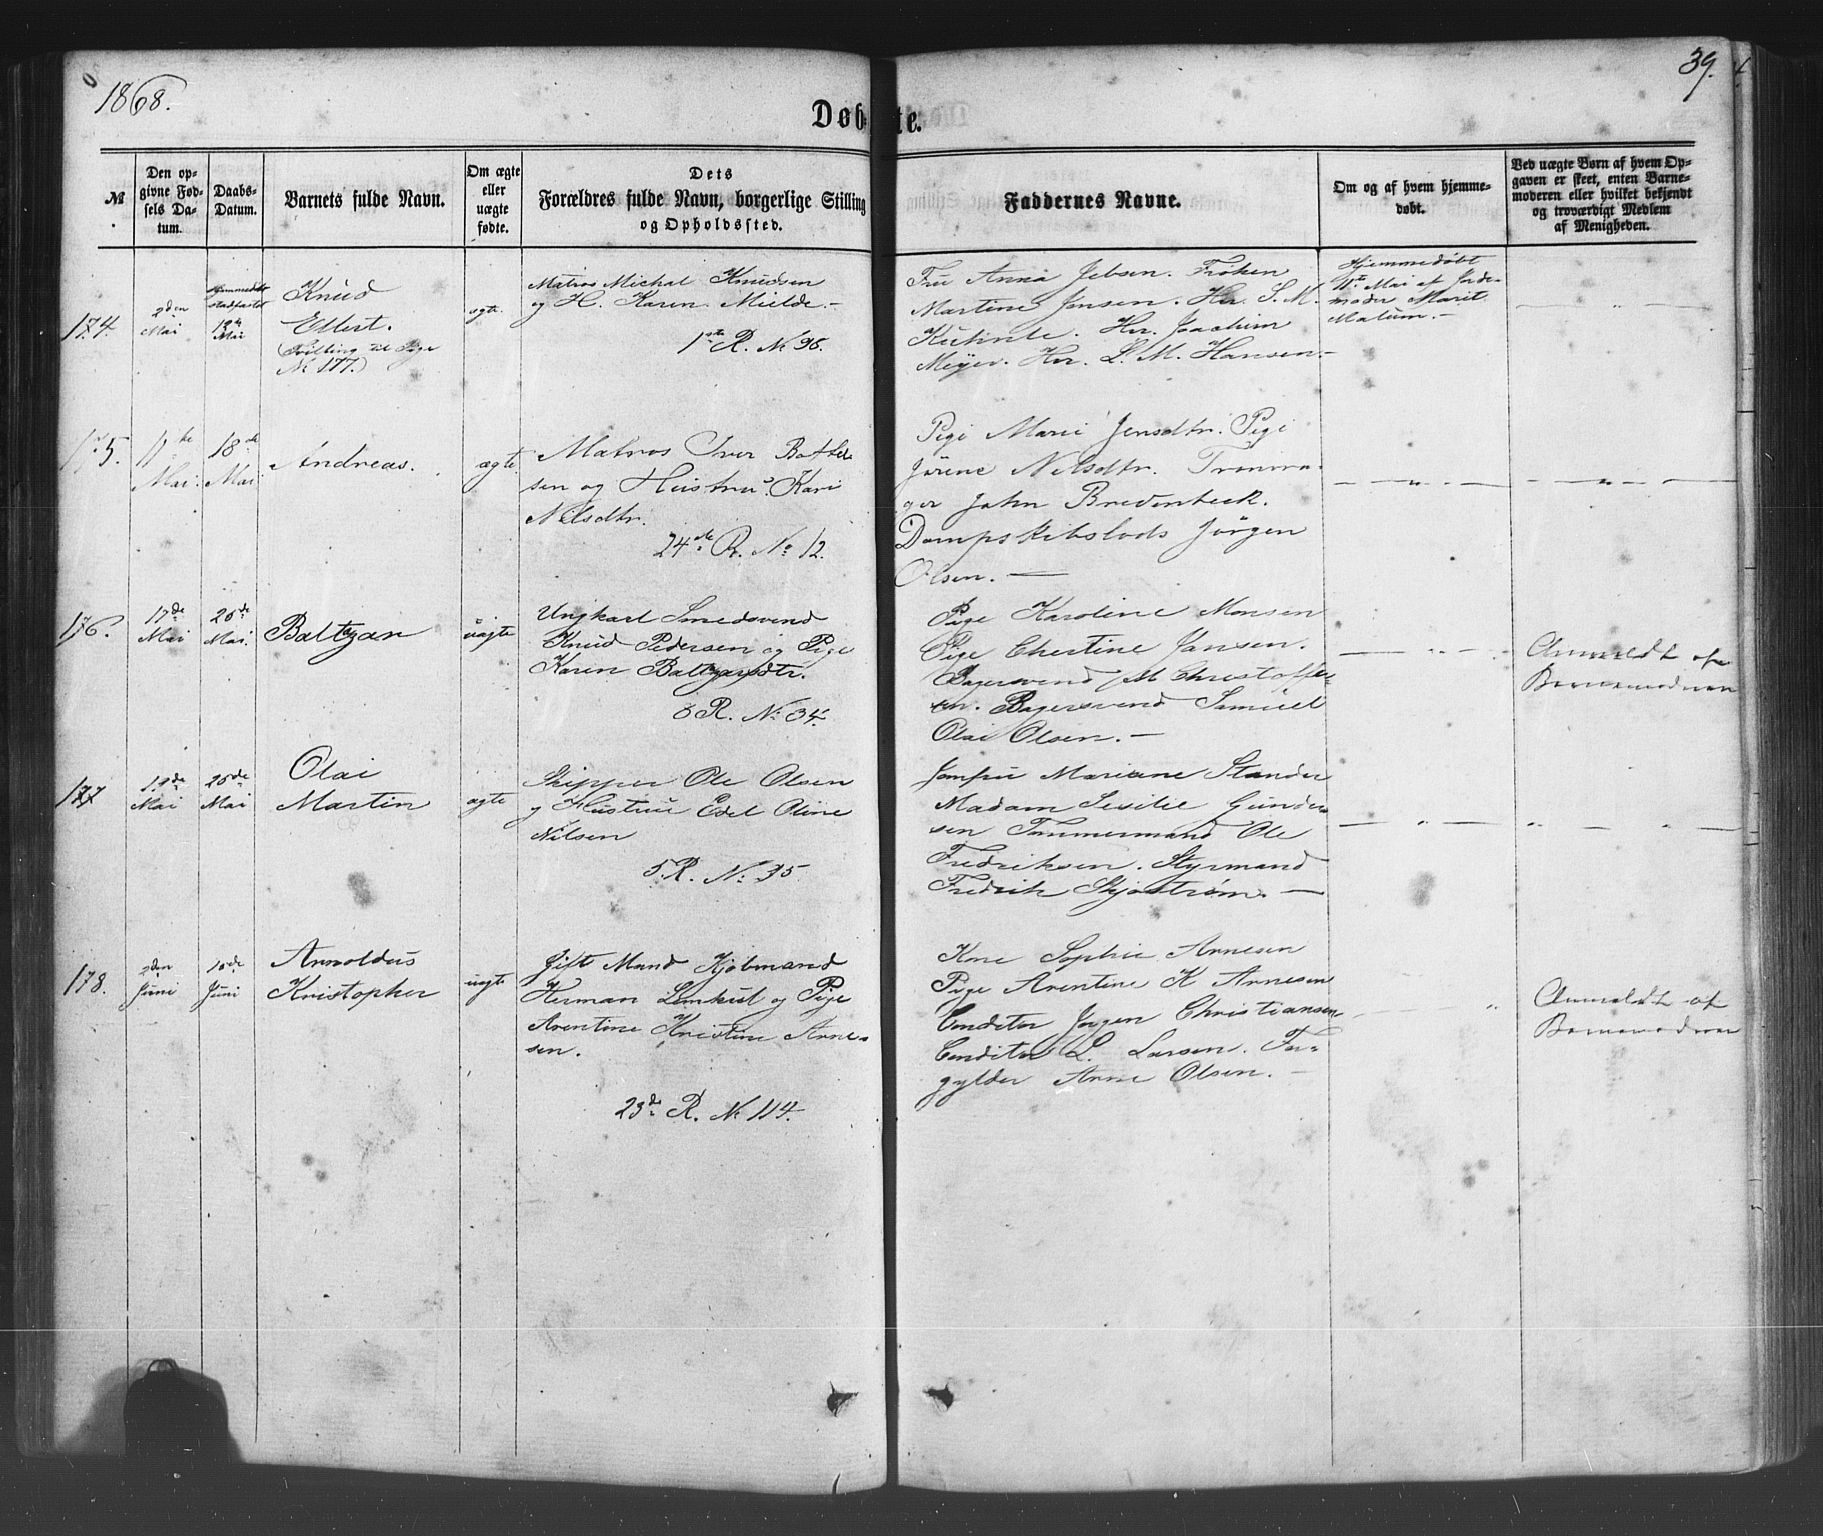 1868.
39.
Døbte.
№
Den op-
givne Fød-
sels Da-
tum.
Daabs-
Datum.
Barnets fulde Navn.
Om ægte
eller
uægte
fødte.
Dets
Forældres fulde Navn, borgerlige Stilling
og Opholdssted.
Faddernes Navne.
Om og af hvem hjemme-
døbt.
Ved uægte Børn af hvem Op-
gaven er skeet, enten Barne-
moderen eller hvilket bekjendt
og troværdigt Medlem
af Menigheden.
174.
2den
Mai
Hjemmedåb
stadfæstet
Mai
Knud
Ellert.
(Tvilling til Pige
№ 177.)
ægte
Matros Michal Knudsen
og H. Karen Mielde.-
1ste R. № 96.
Fru Anna Jebsen. Frøken
Martine Jensen. Hr. S. M.
Hr. Joachim
Meyer. Hr. L. M. Hansen.-
Hjemmedøbt
Mai af Jorde-
moder Marit
175.
11te
Mai
18de
Mai.
Andreas.
ægte
Matros Iver Bottel-
sen og Hustru Kari
Nilsdtr.
24de R. No 12.
Pige Marie Jensdtr. Pige
Jørene Nilsdtr.
John Bredenbeck.
Dampskibslods Jörgen
Olsen. —
176.
17de
Mai
Mai.
Baltzar
uægte
Ungkarl Smedsvend
Knud Pedersen og Pige
Karen Baltzarsdtr.
R. No 34.
Pige Karoline Monsen
Pige Chertine Jansen.
Bagersvend M Christoffer-
sen. Bagersvend Samuel
Olai Olsen. —
Anmeldt af
Barnemoderen
177
Mai
Mai
Olai
Martin
ægte
Skipper Ole Olsen
og Hustru Edel Oline
Nilsen
5. R. No 35
Jomfru Mariane Stander
Madam Sesilie Gunder-
sen Tømmermand Ole
Fredriksen. Styrmand
Fredrik Skjøstrøm. —
178.
2den
Juni
Juni
Arnoldus
Kristopher
uægte
Gift Mand Kjöbmand
Herman Lemkul og Pige
Arentine Kristine Arne-
sen.
23de R. No 114.
Kone Sophie Arnesen
Pige Arentine K Arnesen
Conditor Jørgen Christiansen
Conditor L. Larsen. For-
gylder Arne Olsen. —
Anmeldt af
Barnemoderen